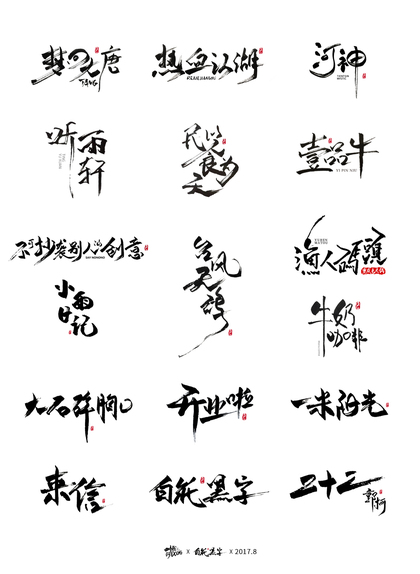 梦回大唐
TANG
热血江湖
REXUEJIANGHU
河神
听雨轩
民以食为天
壹品牛
YI PIN NIU
不可抄袭别人的创意
台风天鸽
渔人码頭
小雨日记
牛奶咖啡
大石碎胸口
开业啦
一米阳光
来信
白纸黑字
二十二
X 白纸黑字 X 2017.8